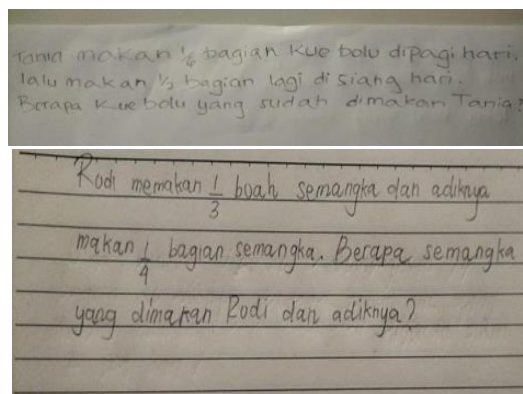 Tania makan 1/4 bagian kue bolu dipagi hari,
lalu makan 1/2 bagian lagi di siang hari.
Berapa kue bolu yang sudah dimakan Tania?
Rodi memakan 1/3 buah semangka dan adiknya
makan 1/4 bagian semangka. Berapa semangka
yang dimakan Rodi dan adiknya?